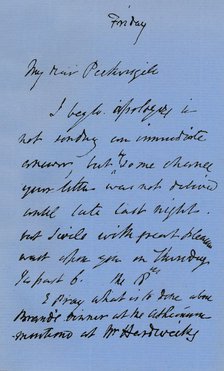 Friday
My dear Pickersgill
I beg to apologise in
not sending an immediate
answer but by some chance
your letter was not delivered
until late last night.
but I will with great pleasure
wait upon you on Thursday
¼ past 6. the 8th
I Pray what is to done about
Brand's dinner at the Athenæum
mentioned at Mr Hardwicks